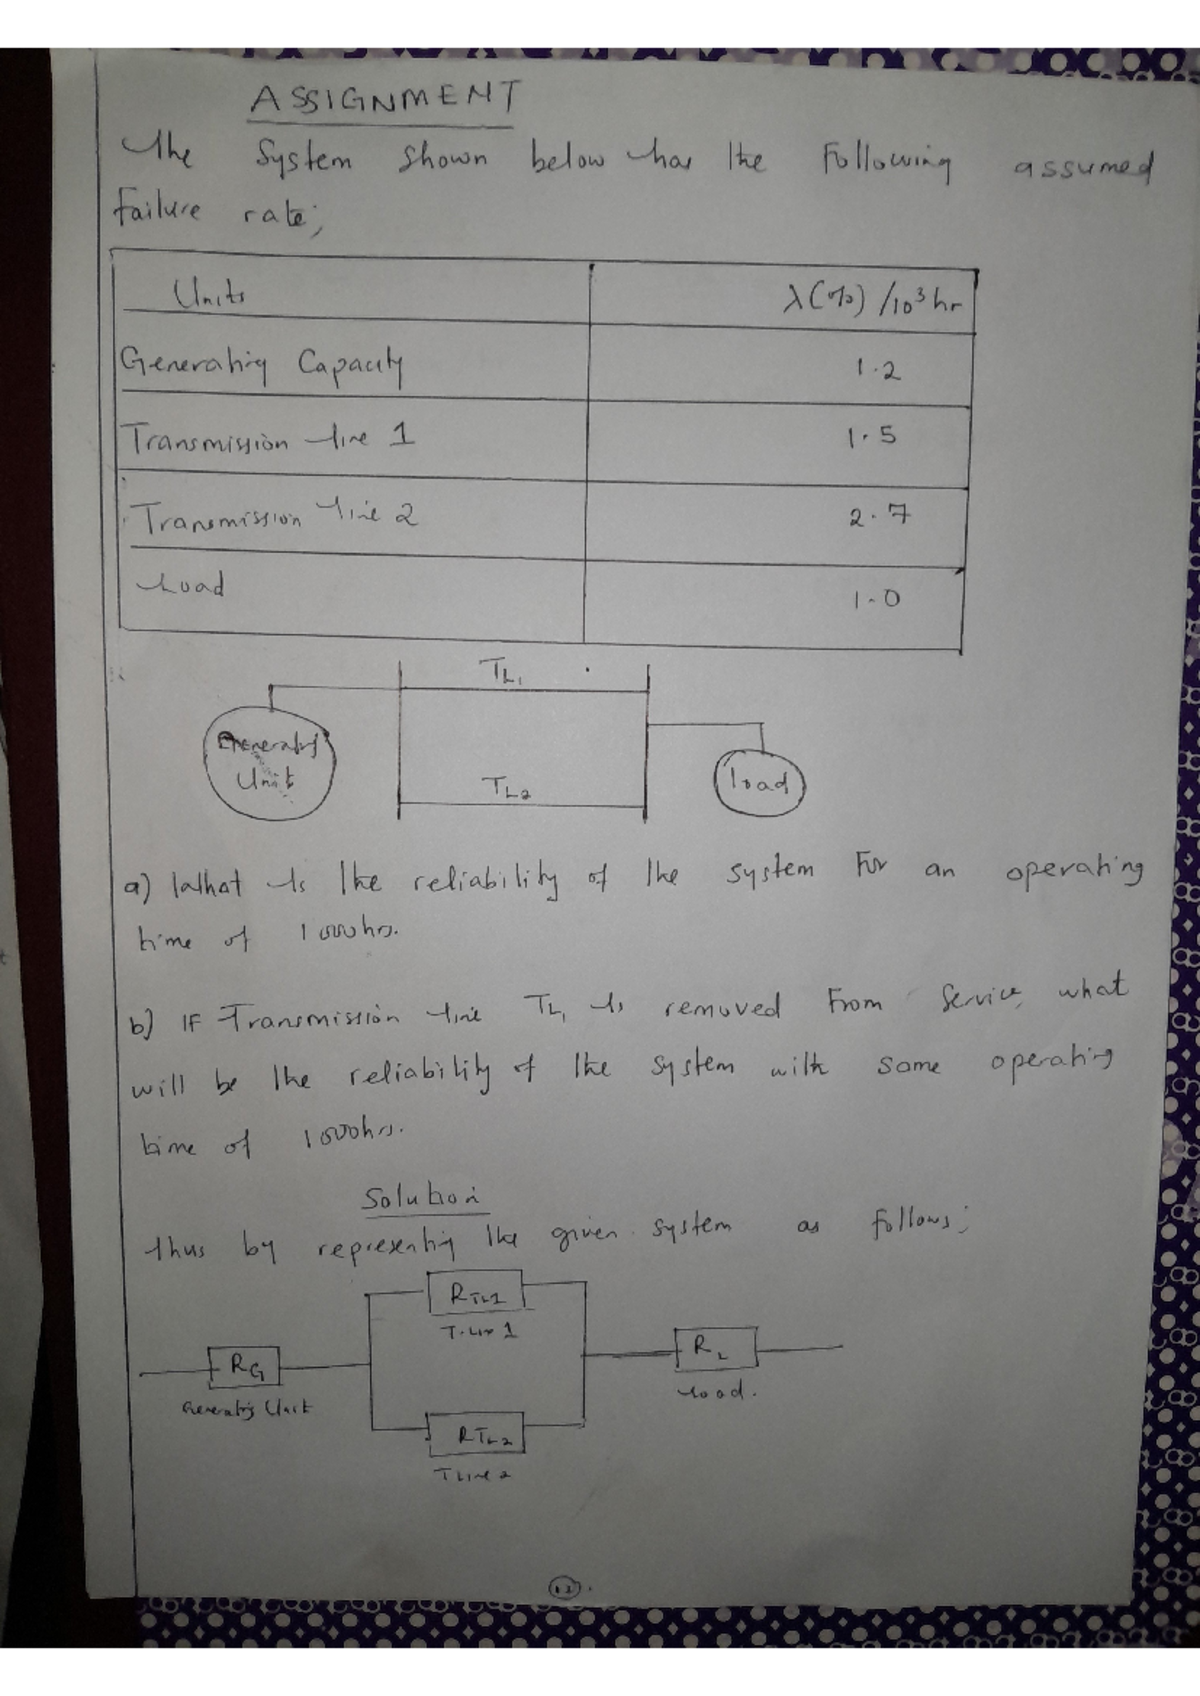 ASSIGNMENT
The System shown below has the following assumed
failure rate;
Units λ(%) /10³ hr
Generating Capacity 1.2
Transmission line 1 1.5
Transmission line 2 2.7
Load 1.0
TL1
Generating
Unit
load
TL2
a) What is the reliability of the system for an operating
time of 1000hrs.
b) IF Transmission line TL1 is removed from service, what
will be the reliability of the system with same operating
time of 1000hrs.
Solution
Thus by representing the given system as follows;
RTL1
T.Line 1
RG
Generating Unit
RL
Load.
RTL2
TLine 2